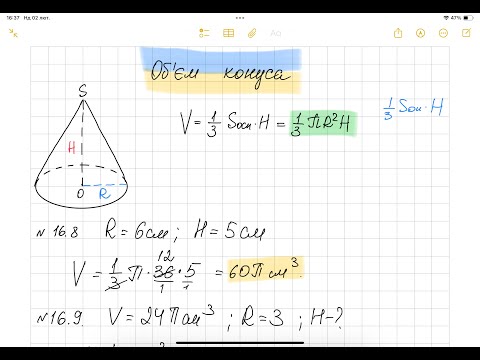 16:37 Нд 02 лют.
47%
Aa
Об'єм конуса
S
H
O
R
V = 1/3 Sосн·H = 1/3 πR²H
1/3 Sосн·H
№ 16.8 R = 6см; H = 5см
V = 1/3 π · 36 · 5 = 60π см³.
12
1 1
№ 16.9. V = 24π см³; R = 3; H-?